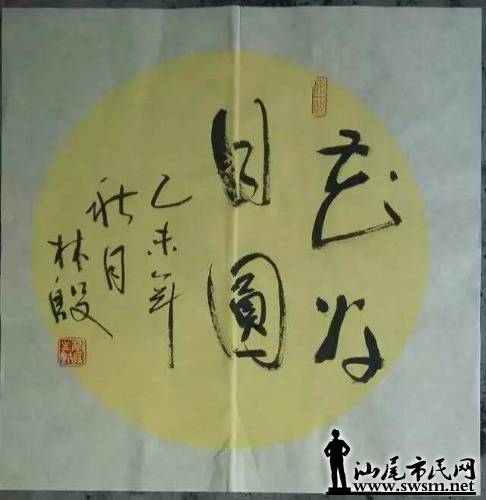 花好
月圓
乙未年
秋月
林殷
汕尾市民网
www.swsm.net